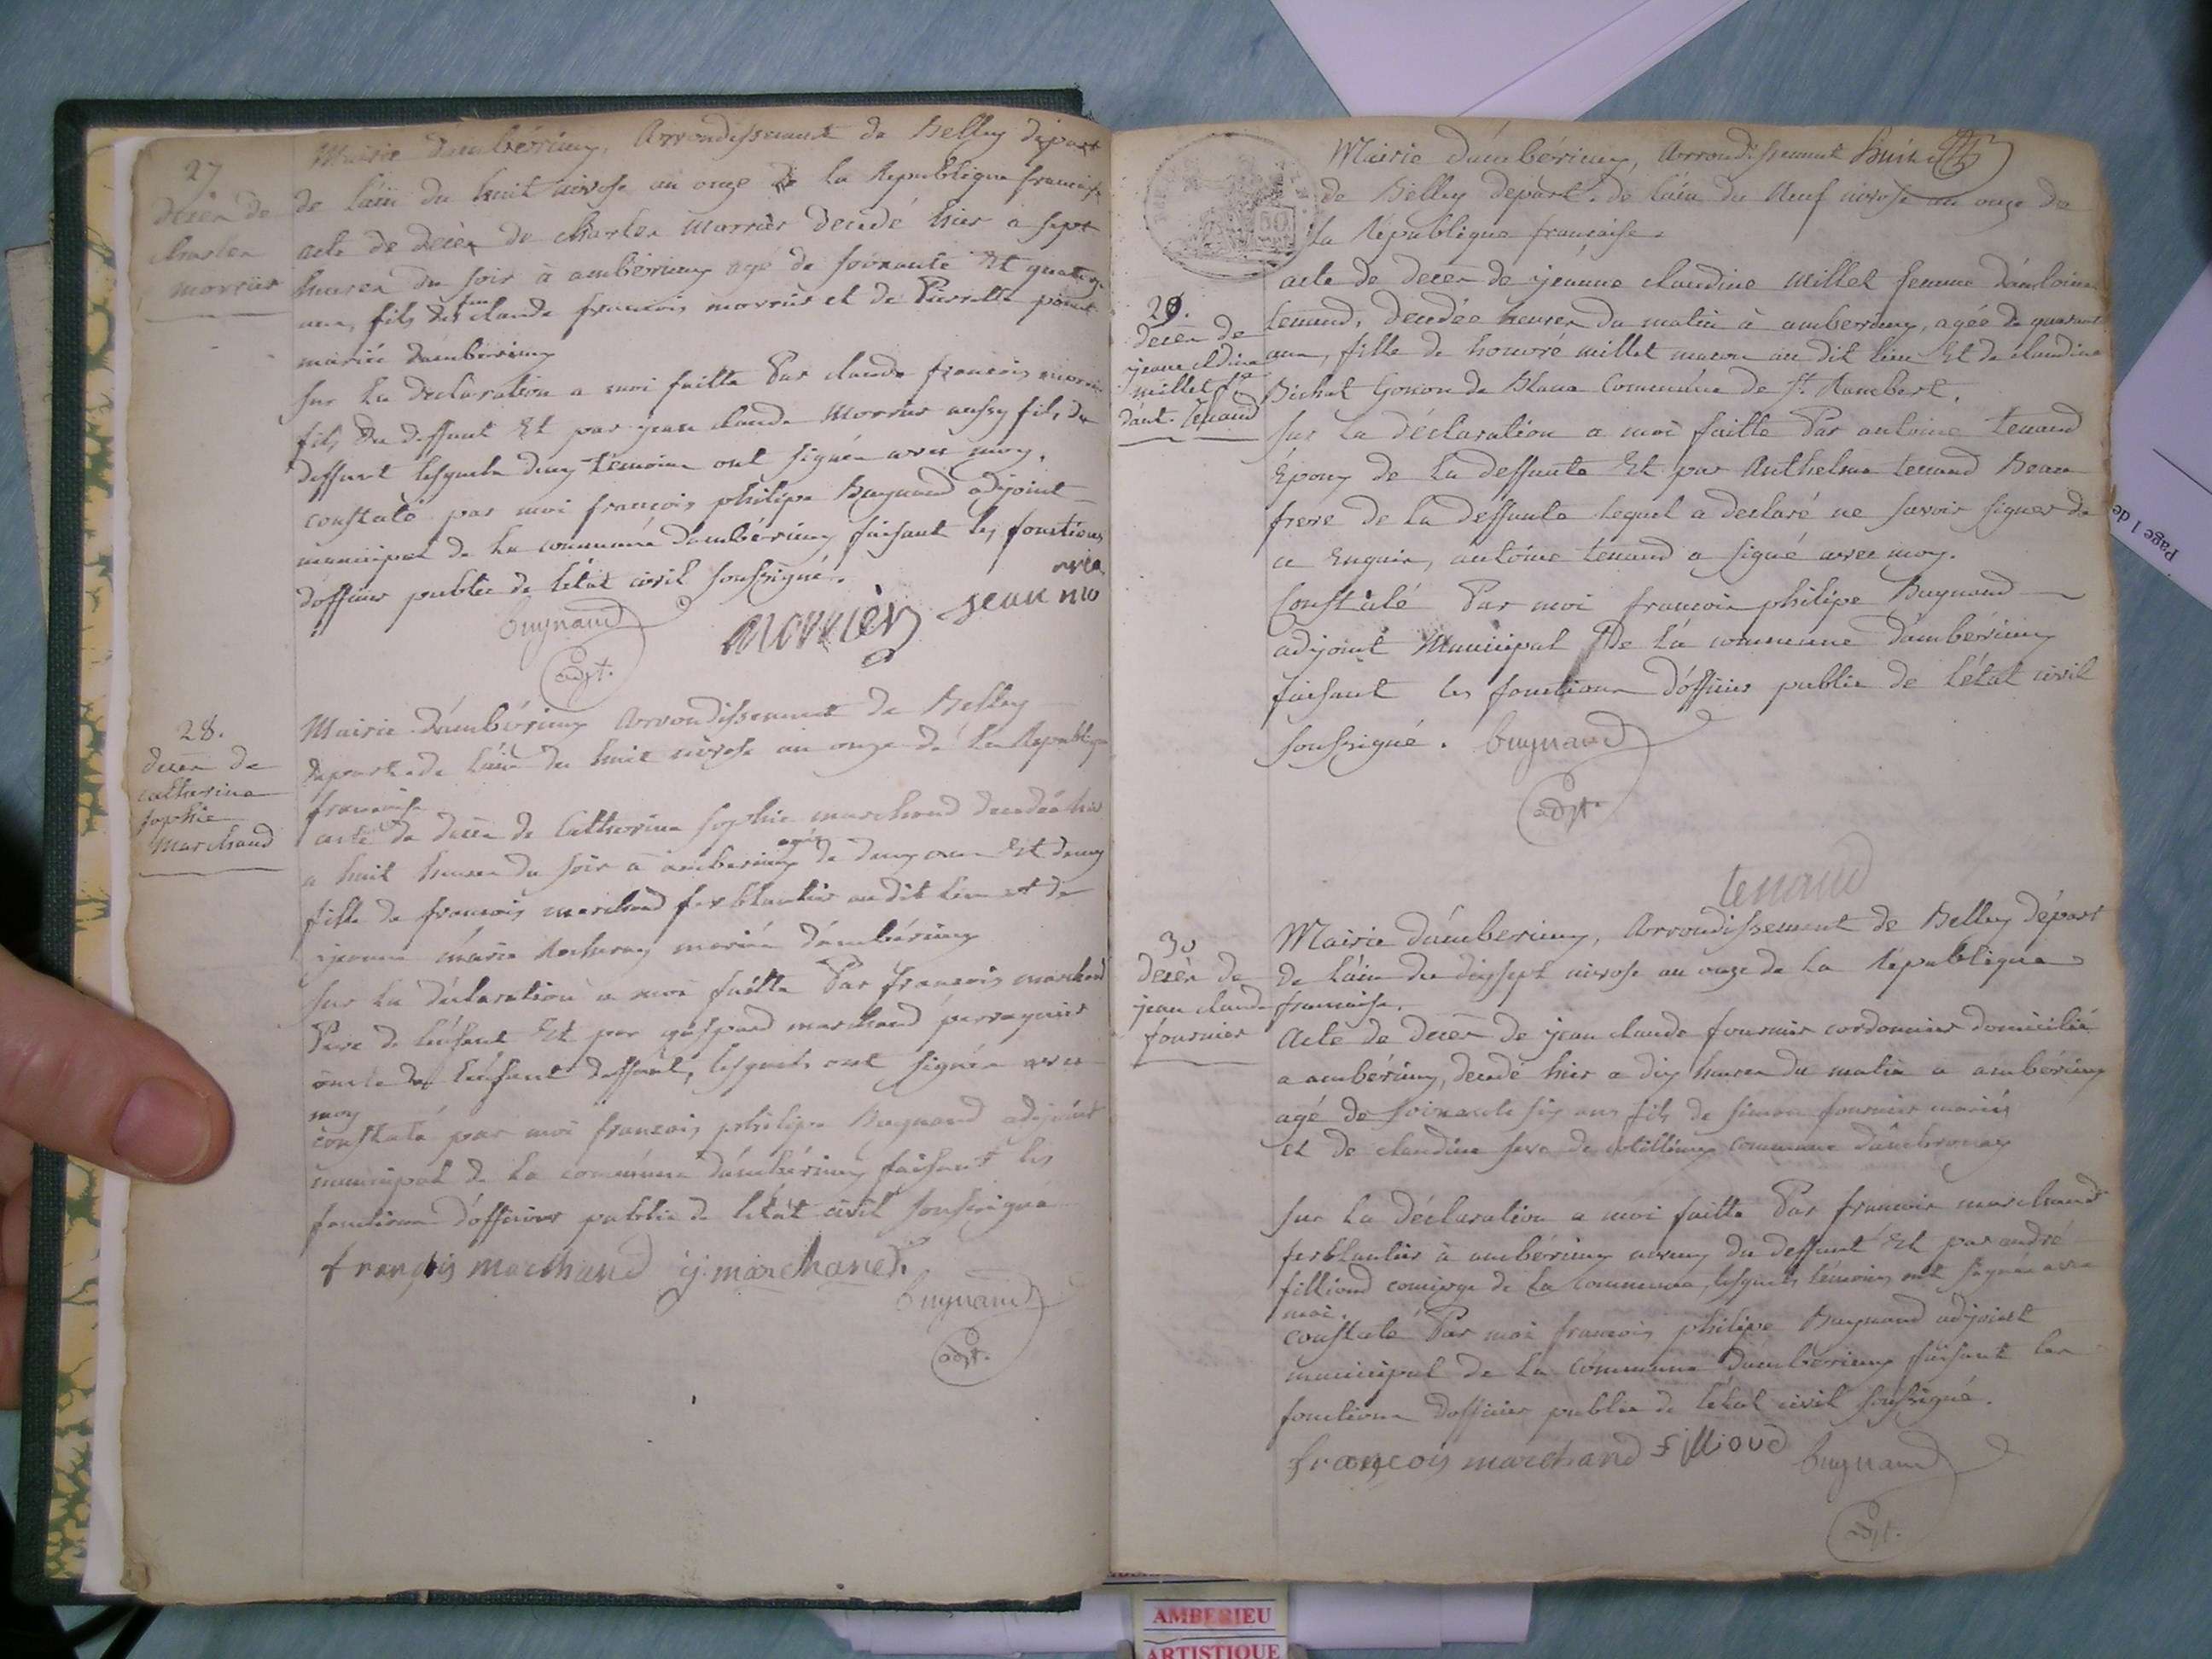 27.
décèn de
charlen
morrier
Mairie d'ambérieux, Arrondissement de Belley départ
de lain du huit nivose an onze de la République francaise
acte de décèn de charlen morrier décédé hier a sept
heuren du soir à ambérieux agé de soixante Et quatorze
ann, fils de feu claude francois morrier et de Pierrette
mariés d'ambérieux
sur la déclaration a moi faitte Par claude francois morrier
fils du deffunt Et par jean claude Morrier aussy fils du
deffunt lesquels deux témoins ont signés avec moy.
constaté par moi françois philipe Bugnand adjoint
municipal de la commune d'ambérieux faisant les fonctions
d'officier public de létat civil soussigné.
bugnand
adjt.
morrier
jean mo
rrier
28.
décèn de
catherine
sophie
Marchand
Mairie d'ambérieux Arrondissement de Belley
départ. de lain du huit nivose an onze de la République
francaise
acte de décèn de Catherine sophie marchand décédée hier
a huit heuren du soir a ambérieux agée de deux ans Et demy
fille de francois marchand ferblantier au dit lieu et de
jeanne marie mariés d'ambérieux
sur la déclaration a moi faitte Par francois marchand
Père de l'enfant Et par gaspard marchand perruquier
oncle de l'enfant deffunt, lesquels ont signén avec
moy
constaté par moi francois philipe Bugnand adjoint
municipal de la commune d'ambérieux faisant les
fonctions d'officier public de létat civil soussigné
françois marchand g. marchand
bugnand
adjt.
Mairie d'ambérieux, Arrondissement
de Belley départ. de lain du Neuf nivose an onze de
la République française.
29.
décèn de
jeane cldine
millet fe
d'ant. tenand
acte de décèn de jeanne claudine millet femme d'antoine
tenand, décédée heuren du matin à ambérieux, agée de quarante
ann, fille de honoré millet macon au dit lieu Et de claudine
Bichat Gonon de Blana Commune de St. Rambert.
sur la déclaration a moi faitte Par antoine tenand
Époux de la deffunte Et par Anthelme tenand Beau
frere de la deffunte lequel a declaré ne savoir signer de
ce Enquis, antoine tenand a signé avec moy.
Constaté Par moi francois philipe Bugnand
adjoint Municipal De la commune d'ambérieux
faisant les fonctions d'officier public de l'état civil
soussigné. bugnand
adjt.
tenand
30
décèn de
jean claude
fournier
Mairie d'ambérieux, Arrondissement de Belley départ
de lain du dixsept nivose an onze de la République
francaise.
Acte de décèn de jean claude fournier cordonnier domicilié
a ambérieux, décédé hier a dix heuren du matin a ambérieux
agé de soixante six ans fils de simon fournier mariés
et de claudine commune d'ambronay
sur la déclaration a moi faitte Par francois marchand
ferblantier à ambérieux du deffunt Et par andré
filliond concierge de la commune, lesquels témoins ont signén avec
moi.
constaté Par moi francois philipe Bugnand adjoint
municipal de la commune d'ambérieux faisant les
fonctions d'officier public de létat civil soussigné.
françois marchand fillioud bugnand
adjt.
Page 1 de
AMBERIEU
ARTISTIQUE